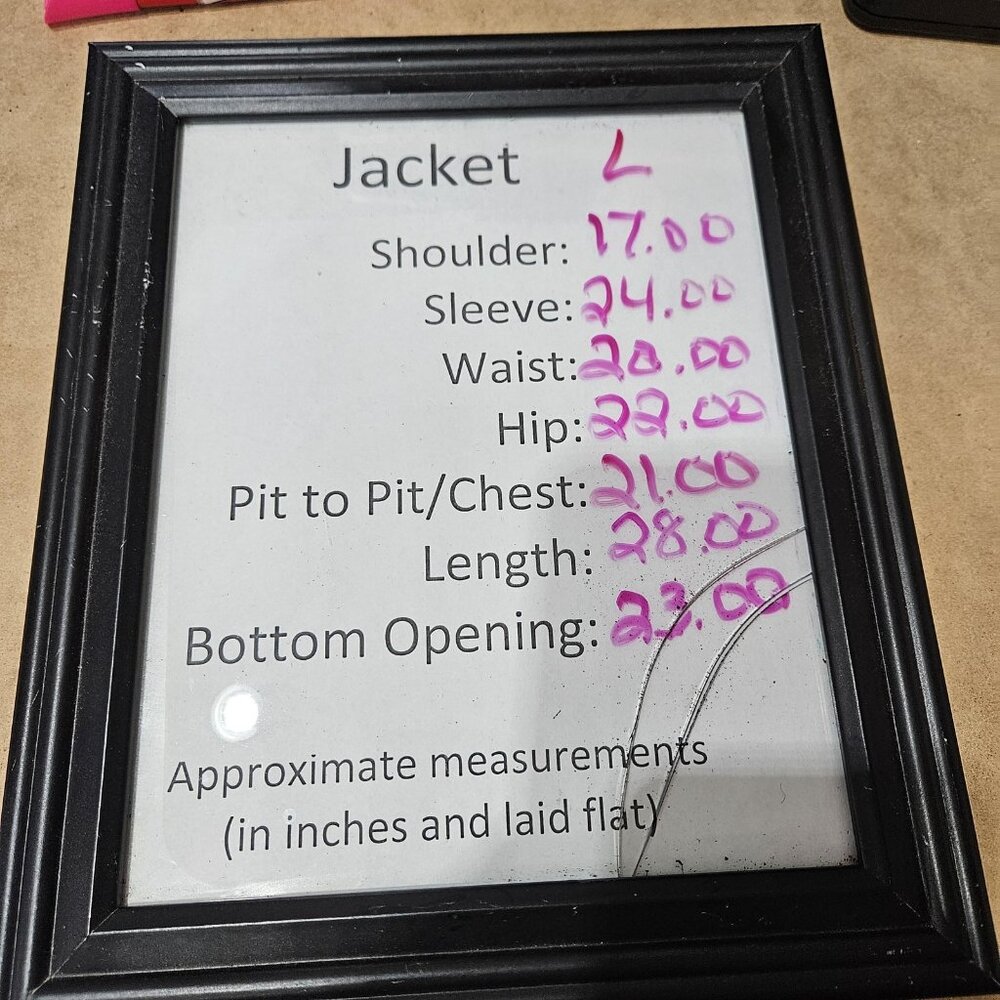 Jacket L
Shoulder: 17.00
Sleeve: 24.00
Waist: 20.00
Hip: 22.00
Pit to Pit/Chest: 21.00
Length: 28.00
Bottom Opening: 23.00
Approximate measurements
(in inches and laid flat)